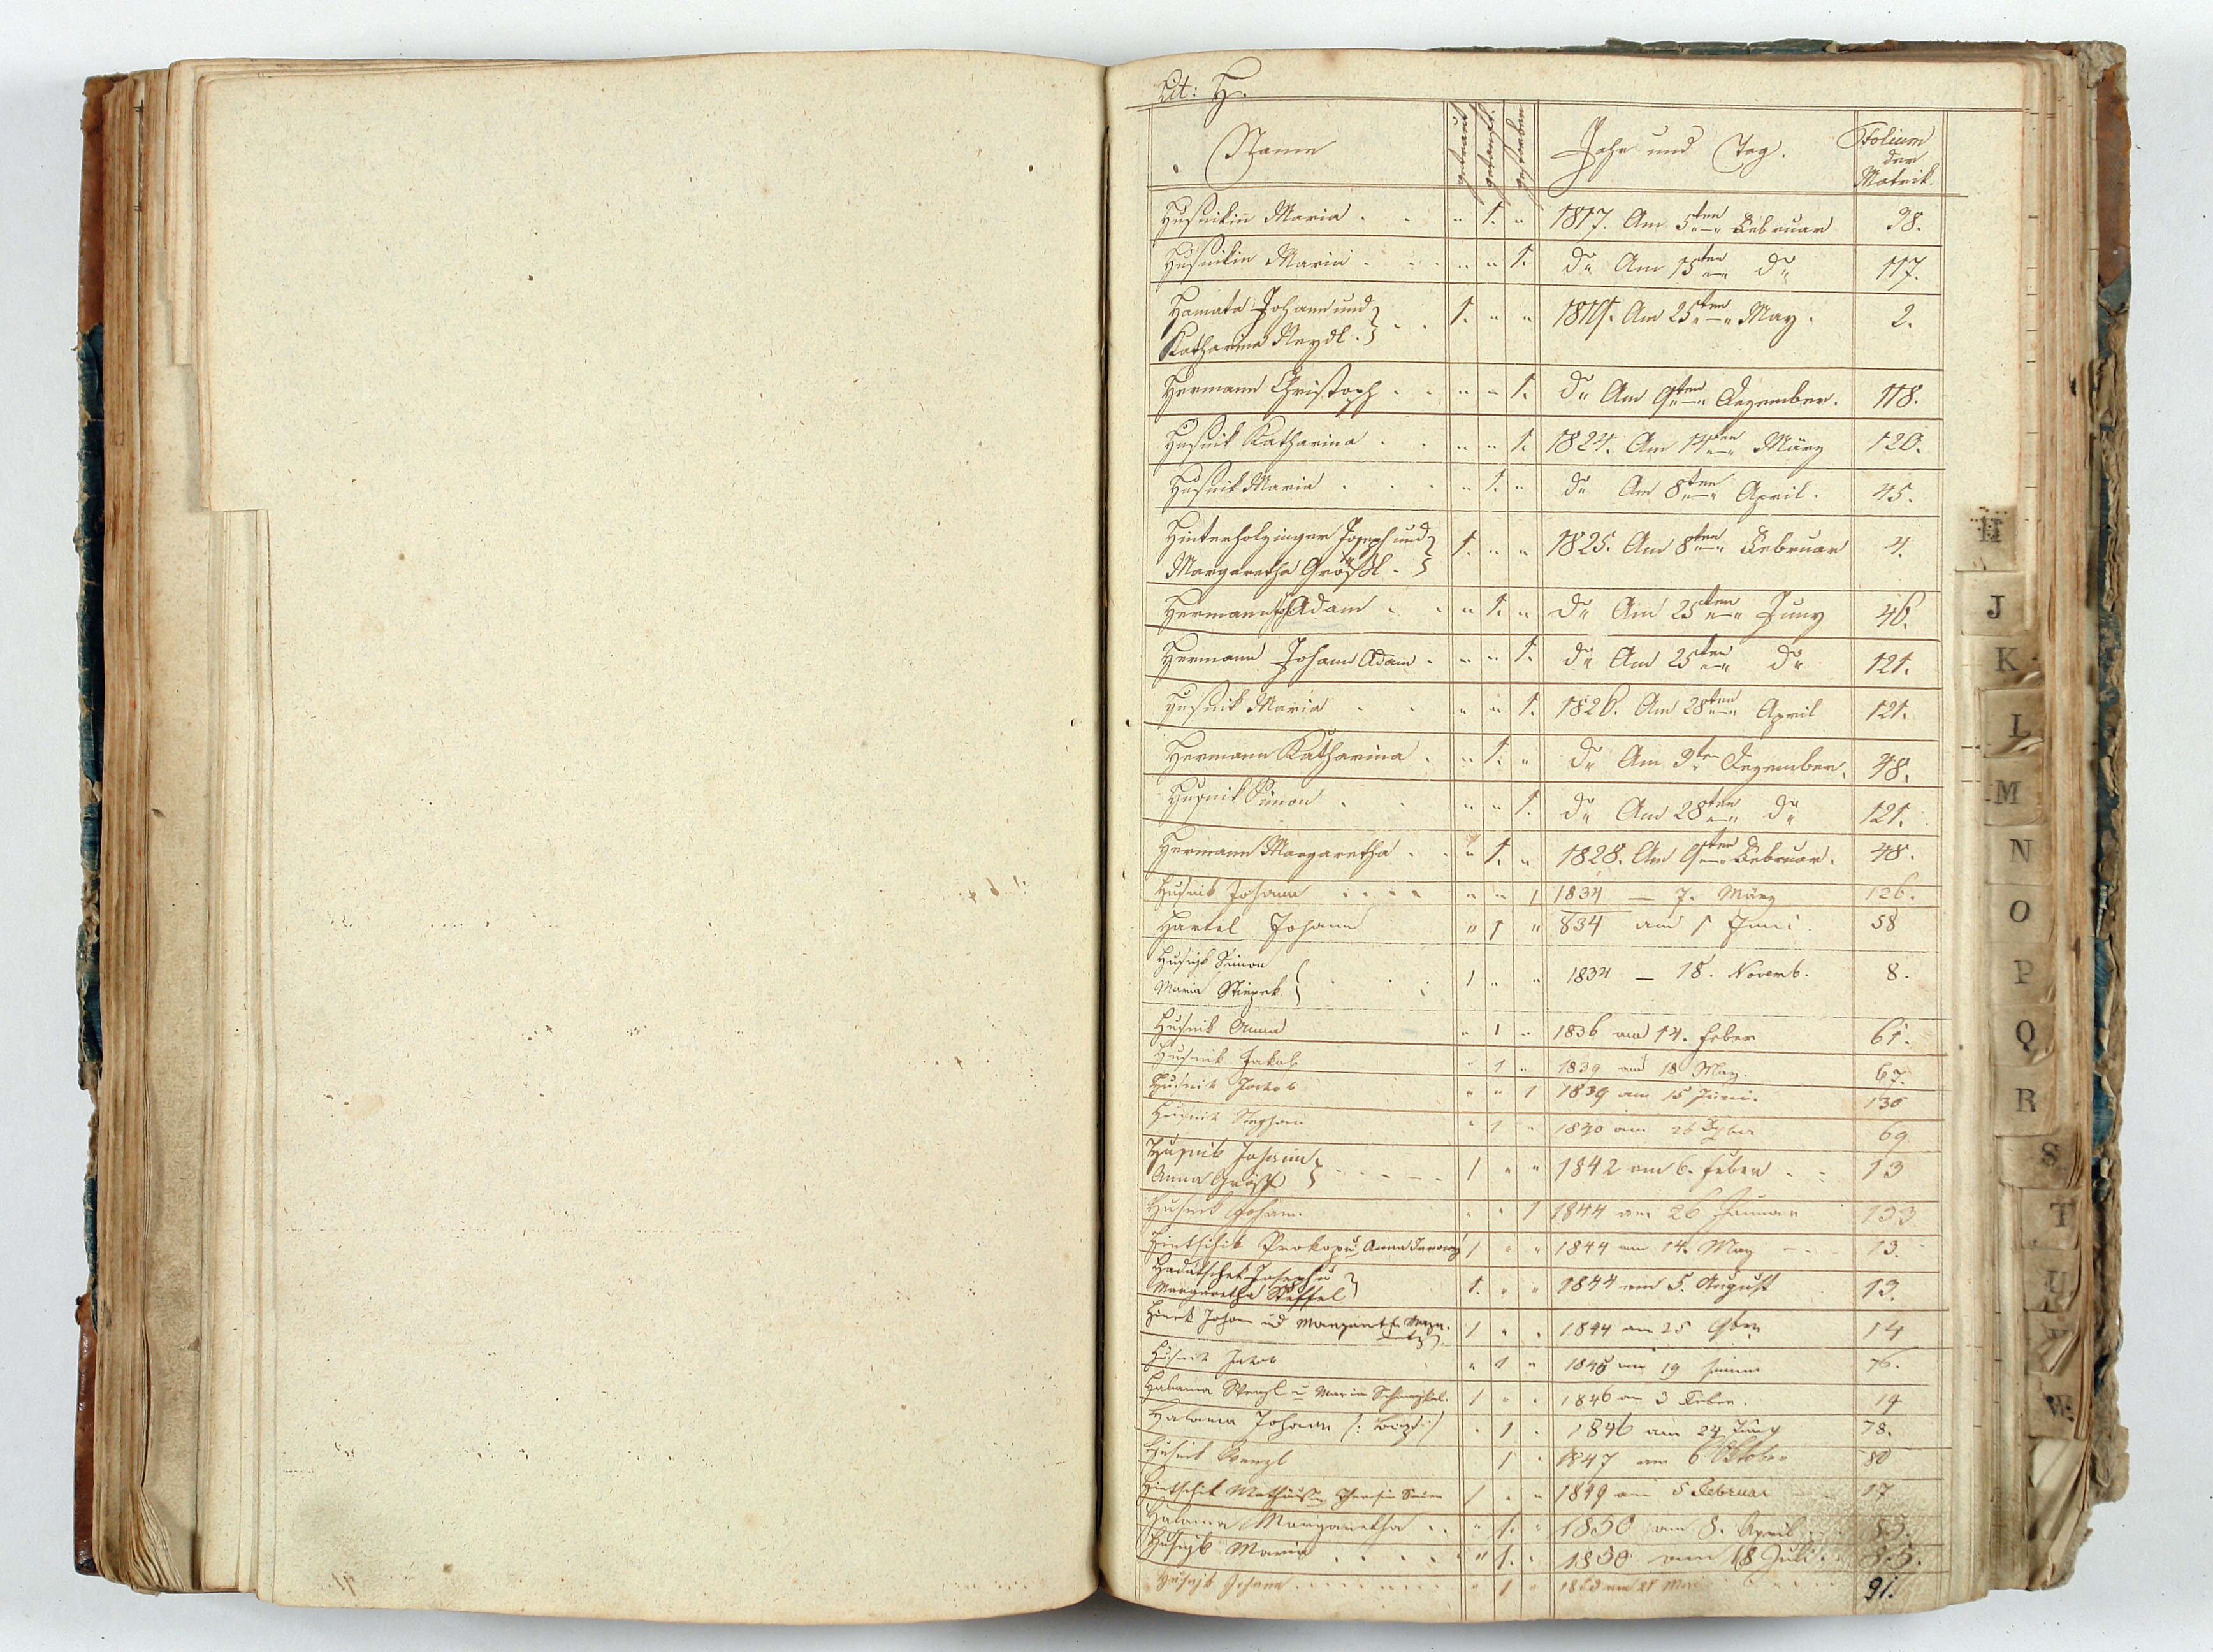 Lit: H.
Name getraut getauft. gestorben Jahr und Tag. Folium der Matrik.
Husnikin Maria . . " 1. " 1817. Am 5ten Februar 38.
Husnikin Maria . . . " " 1. do Am 15ten do 117.
Hamata Johann und
Katharina Neydl . } . . 1. " " 1819. Am 25ten May . 2.
Hermann Christoph . . " " 1. do Am 9ten Dezember. 118.
Husnik Katharina . . " " 1. 1824. Am 14ten März 120.
Husnik Maria . . . " 1. " do Am 8ten April . 45.
Hinterholzinger Joseph und
Margaretha Größl . } 1. " " 1825. Am 8ten Februar 4.
Hermann Adam . . " 1. " do Am 25ten Juny 46.
Hermann Johann Adam . " " 1. do Am 25ten do 121.
Husnik Maria . . " " 1. 1826. Am 28ten April 121.
Hermann Katharina . " 1. " do Am 3ten Dezember. 48.
Husnik Simon . . " " 1. do Am 28ten do 121.
Hermann Margaretha . . " 1. " 1828. Am 9ten Februar. 48.
Husnik Johann . . . . " " 1 1834 — 7. März 126.
Hartel Johann " 1 " 834 am 1 Juni . 58
Husnik Simon
Maria } . . . 1 " " 1834 — 18. Novemb. 8.
Husnik Anna " 1 " 1836 am 14. Feber 61.
Husnik Jakob " 1 " 1839 am 18 May. 67.
Husnik Jakob " " 1 1839 am 15 Juni. 130
Husnik Stephan " 1 " 1840 am 26 69
Husnik Johann
Anna Größl } . . . . 1 " " 1842 am 6. Feber . . 13
Husnik Johann. " " 1 1844 am 26 Januar 133
Hintschik Prokop u. Anna 1 " " 1844 am 14. May 13.
Hadatschek Joseph u
Margaretha Steffel } 1. " " 1844 am 5. August 13.
Johann und Margareth 1 " . 1844 am 25 14
Husnik Jakob " 1 " 1845 am 19 76.
Halama Wenzl u Maria 1 " . 1846 am 3 Feber. 14
Halama Johann . 1 . 1846 am 24 Juny 78.
Husnik Wenzl 1 . 1847 am 6 Oktober 80
Hintschik Mathäus 1 . " 1849 am 5 Februar 17
Halama Margaretha . . " 1. " 1850 am 8. April . . 83.
Husnik Maria . . . . . " 1. . 1850 am 18 Juli . . 85.
Husnik Johann . . . . . . . " 1 " am 21 Mai 91.
H
J
K
L
M
N
O
P
Q
R
S
T
U
V
W.